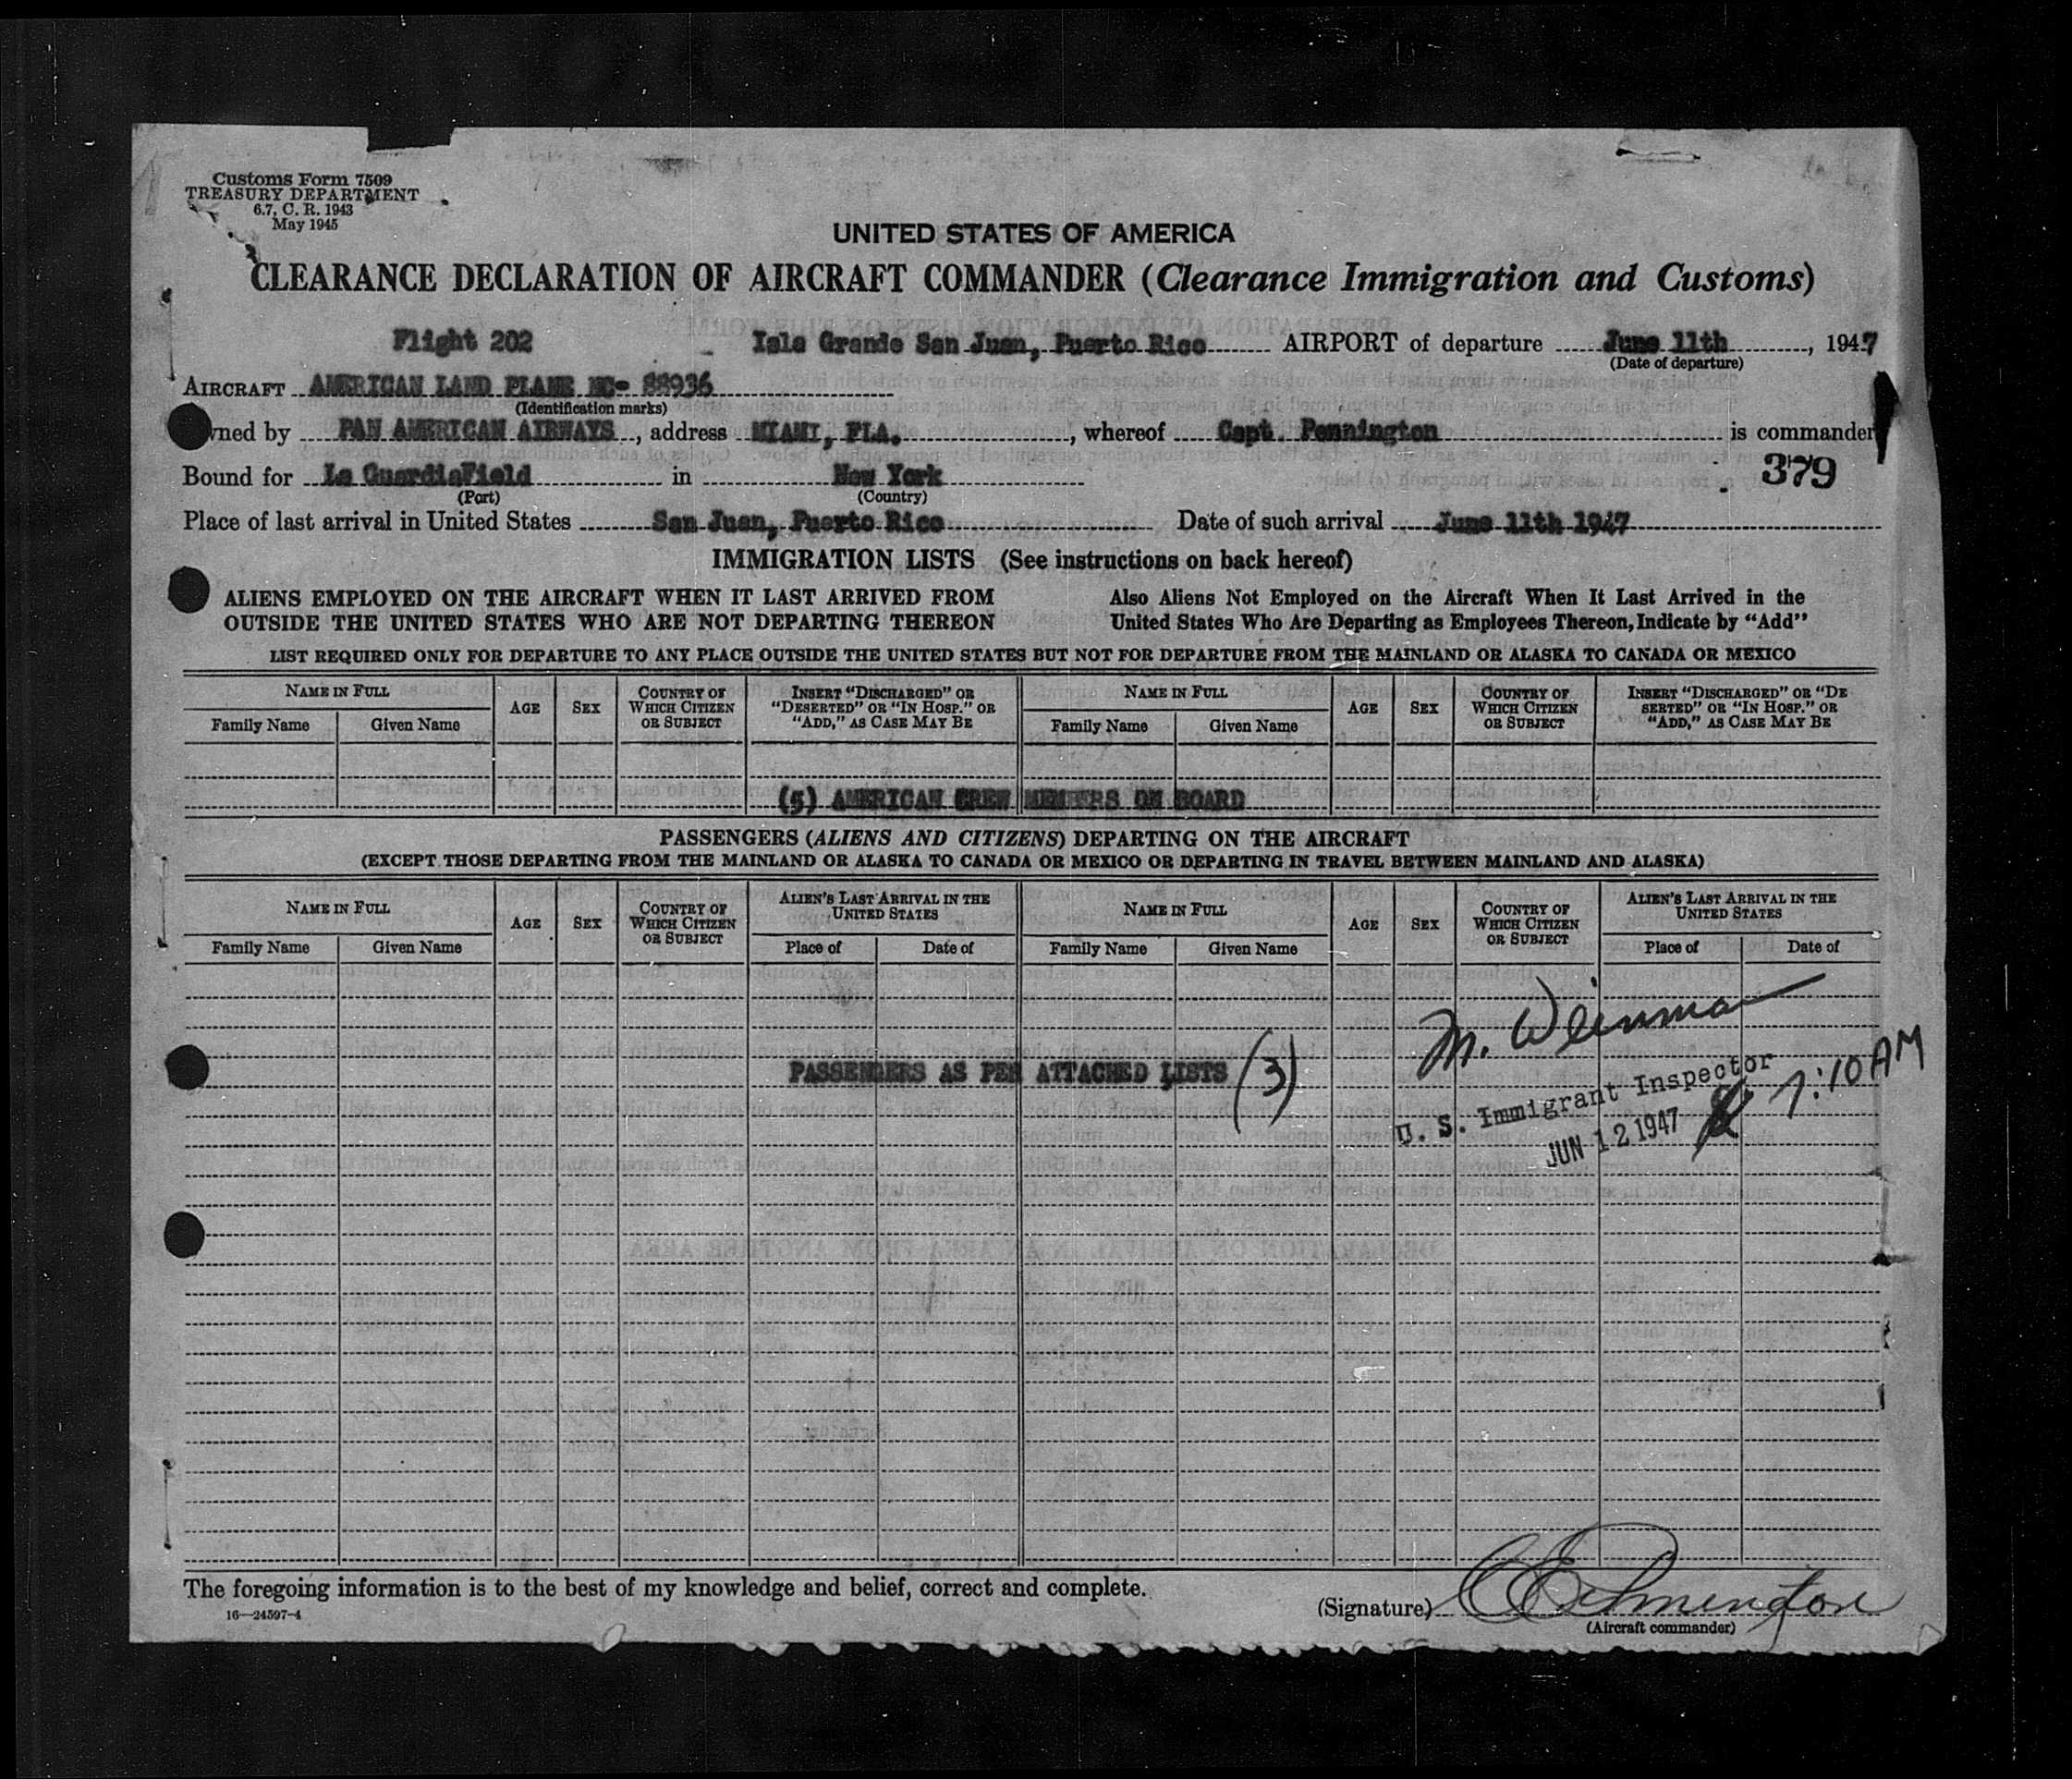 Customs Form 7509
TREASURY DEPARTMENT
6.7, C. R. 1943
May 1945
UNITED STATES OF AMERICA
CLEARANCE DECLARATION OF AIRCRAFT COMMANDER (Clearance Immigration and Customs)
Flight 202 Isla Grande San Juan, Puerto Rico AIRPORT of departure June 11th, 1947
(Date of departure)
AIRCRAFT AMERICAN LAND PLANE NC- 88936
(Identification marks)
wned by PAN AMERICAN AIRWAYS, address MIAMI, FLA., whereof Capt. Pennington is commander
379
Bound for La GuardiaField in New York
(Port) (Country)
Place of last arrival in United States San Juan, Puerto Rico Date of such arrival June 11th 1947
IMMIGRATION LISTS (See instructions on back hereof)
ALIENS EMPLOYED ON THE AIRCRAFT WHEN IT LAST ARRIVED FROM Also Aliens Not Employed on the Aircraft When It Last Arrived in the
OUTSIDE THE UNITED STATES WHO ARE NOT DEPARTING THEREON United States Who Are Departing as Employees Thereon, Indicate by "Add"
LIST REQUIRED ONLY FOR DEPARTURE TO ANY PLACE OUTSIDE THE UNITED STATES BUT NOT FOR DEPARTURE FROM THE MAINLAND OR ALASKA TO CANADA OR MEXICO
NAME IN FULL AGE SEX COUNTRY OF WHICH CITIZEN OR SUBJECT INSERT "DISCHARGED" OR "DESERTED" OR "IN HOSP." OR "ADD," AS CASE MAY BE NAME IN FULL AGE SEX COUNTRY OF WHICH CITIZEN OR SUBJECT INSERT "DISCHARGED" OR "DE SERTED" OR "IN HOSP." OR "ADD," AS CASE MAY BE
Family Name Given Name Family Name Given Name
(5) AMERICAN CREW MEMBERS ON BOARD
PASSENGERS (ALIENS AND CITIZENS) DEPARTING ON THE AIRCRAFT
(EXCEPT THOSE DEPARTING FROM THE MAINLAND OR ALASKA TO CANADA OR MEXICO OR DEPARTING IN TRAVEL BETWEEN MAINLAND AND ALASKA)
NAME IN FULL AGE SEX COUNTRY OF WHICH CITIZEN OR SUBJECT ALIEN'S LAST ARRIVAL IN THE UNITED STATES NAME IN FULL AGE SEX COUNTRY OF WHICH CITIZEN OR SUBJECT ALIEN'S LAST ARRIVAL IN THE UNITED STATES
Family Name Given Name Place of Date of Family Name Given Name Place of Date of
M. Weinman
PASSENGERS AS PER ATTACHED LISTS (3)
U. S. Immigrant Inspector
JUN 12 1947 7:10 AM
The foregoing information is to the best of my knowledge and belief, correct and complete.
16—24597-4
(Signature) Pennington
(Aircraft commander)